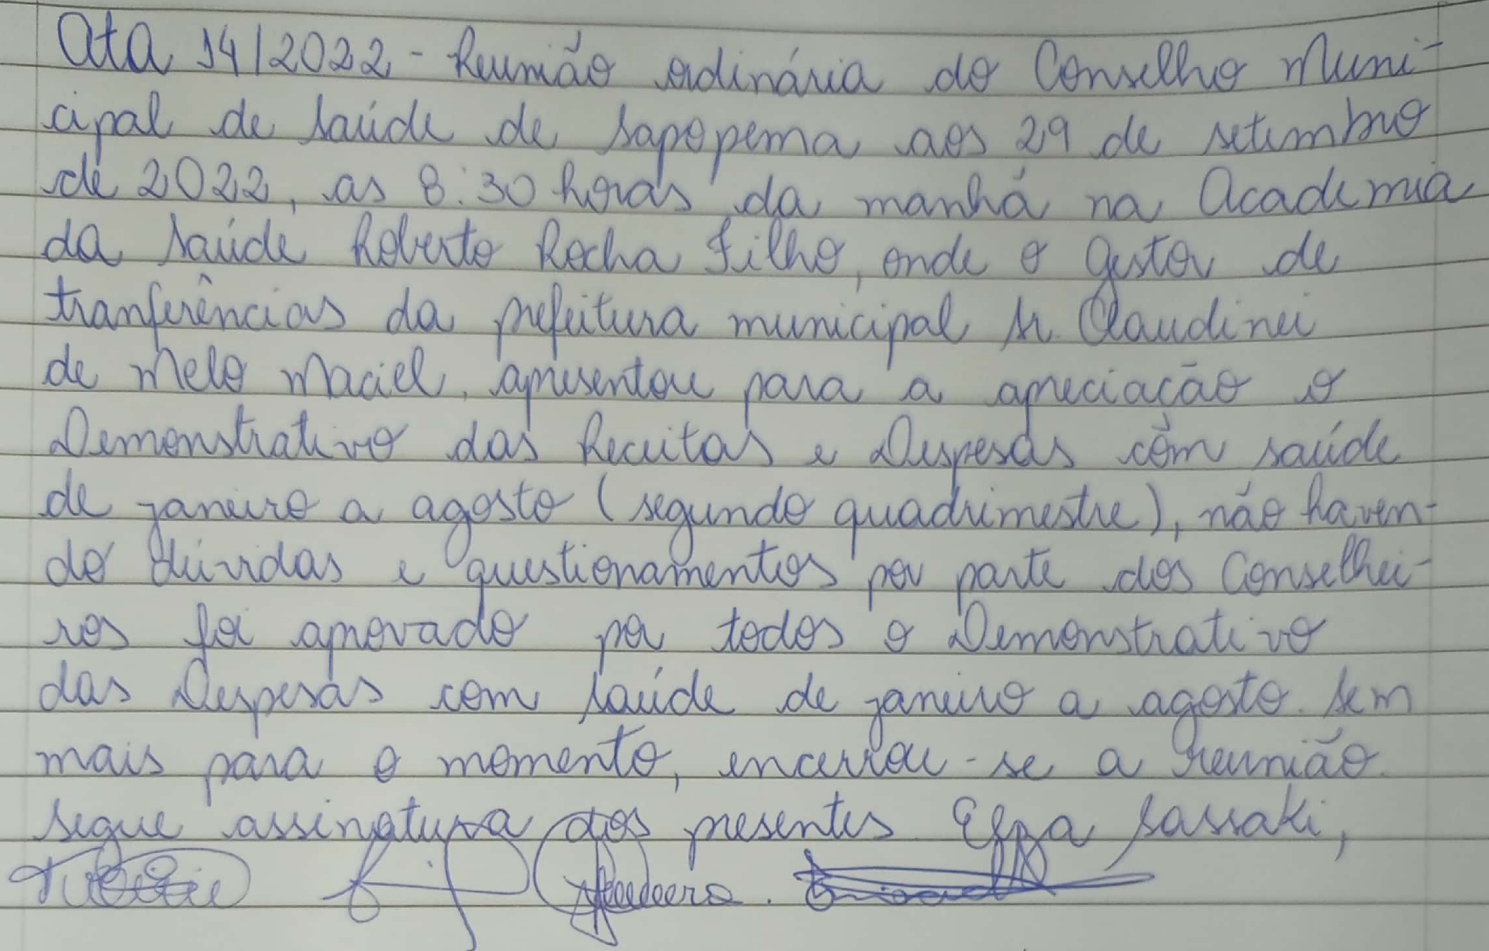 Ata 14/2022 - Reunião ordinária do Conselho Muni-
cipal de Saúde de Sapopema aos 29 de setembro
de 2022, as 8:30 horas da manhã na Academia
da Saúde Roberto Rocha Filho, onde o gestor de
tranferências da prefeitura municipal Sr. Claudinei
de Melo Maciel, apresentou para a apreciação o
Demonstrativo das Receitas e Despesas com saúde
de janeiro a agosto (segundo quadrimestre), não haven-
do dúvidas e questionamentos por parte dos Conselhei-
ros foi aprovado por todos o Demonstrativo
das Despesas com saúde de janeiro a agosto. Sem
mais para o momento, encerrou-se a reunião.
Segue assinatura dos presentes Elza Sassaki,